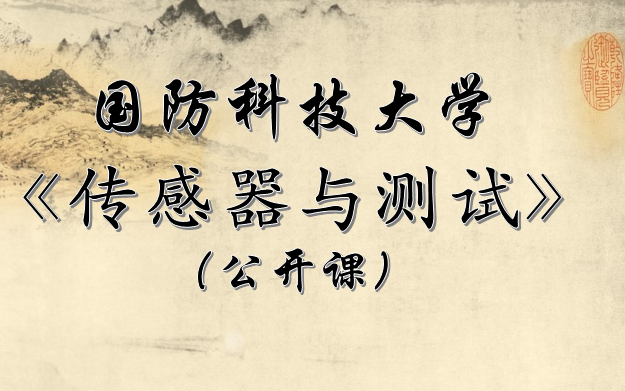 国防科技大学
《传感器与测试》
(公开课)